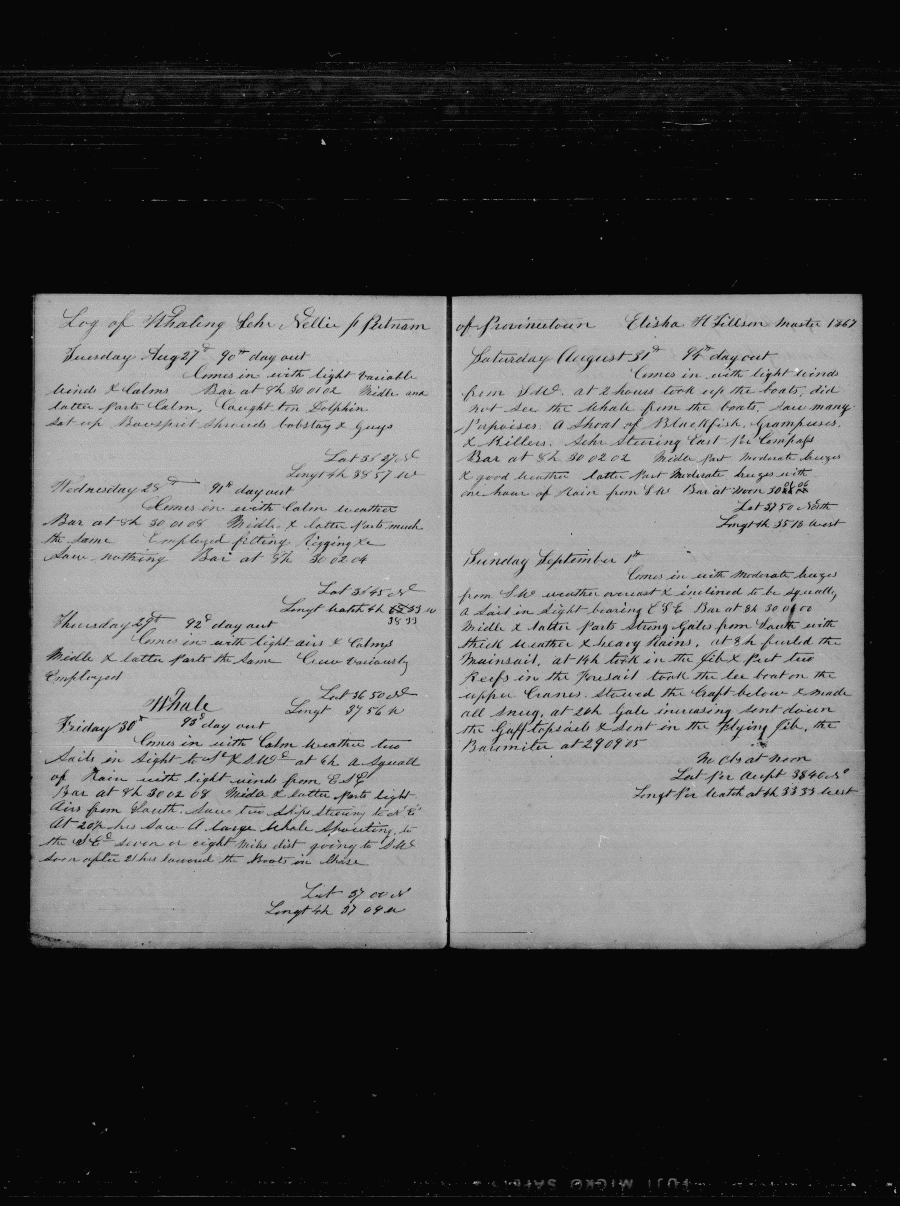 Log of Whaling Schr Nellie S Putnam
Tuesday Aug 27th 90th day out
Comes in with light variable
winds & Calms Bar at 8h 30 01 02 Middle and
latter Parts Calm, Caught ten Dolphin
Set up Bowsprit Shrouds bobstay & Guys
Lat 35 27 N
Longt 4h 38 57 W
Wednesday 28th 91st day out
Comes in with Calm weather
Bar at 8h 30 01 08 Middle & latter Parts much
the same Employed fitting Rigging &c
Saw nothing Bar at 8h 30 02 04
Lat 35 45 N
Longt watch 4h 33 W
38 33
Thursday 29th 92d day out
Comes in with light airs & Calms
Middle & latter Parts the Same Crew variously
Employed
Lat 36 50 N
Whale Longt 37 56 W
Friday 30th 93d day out
Comes in with Calm weather two
Sails in Sight to N & SW at 6h a Squall
of Rain with light wind from ESE
Bar at 8h 30 02 08 Middle & latter Parts light
Airs from South. Saw two Ships Steering to N E
At 20½ hrs Saw A large Whale Spouting to
the seven or eight Miles dist going to SW
soon after 21 hrs lowered the Boats in Chase
Lat 37 00 N
Longt 4h 37 04 W
of Provincetown Elisha H Tillson Master 1867
Saturday August 31st 94th day out
Comes in with light winds
from SW. at 2 hours took up the boats, did
not see the Whale from the boats, Saw many
Porpoises. A Shoal of Blackfish, Grampuses.
& Killers. Schr Steering East Per Compass
Bar at 8h 30 02 02 Middle Part Moderate breezes
& good weather latter Part Moderate breezes with
one hour of Rain from SW Bar at Noon 30 01 06
Lat 37 50 North
Longt 4h 35 16 West
Sunday September 1st
Comes in with Moderate breezes
from SW weather overcast & inclined to be squally
A Sail in Sight bearing ESE Bar at 8h 30 01 00
Middle & latter Parts Strong Gales from South with
thick weather & heavy Rains, at 8h furled the
Mainsail, at 14h took in the Jib & Put two
Reefs in the Foresail took the lee boat on the
upper Cranes. Stowed the Craft below & made
all snug, at 24h Gale increasing sent down
the Gaff topsails & Sent in the Flying Jib, the
Barimiter at 29 09 05
No Obs at Noon
Lat Per Acpt 38 40 N
Longt Per Watch at 4h 33 33 West